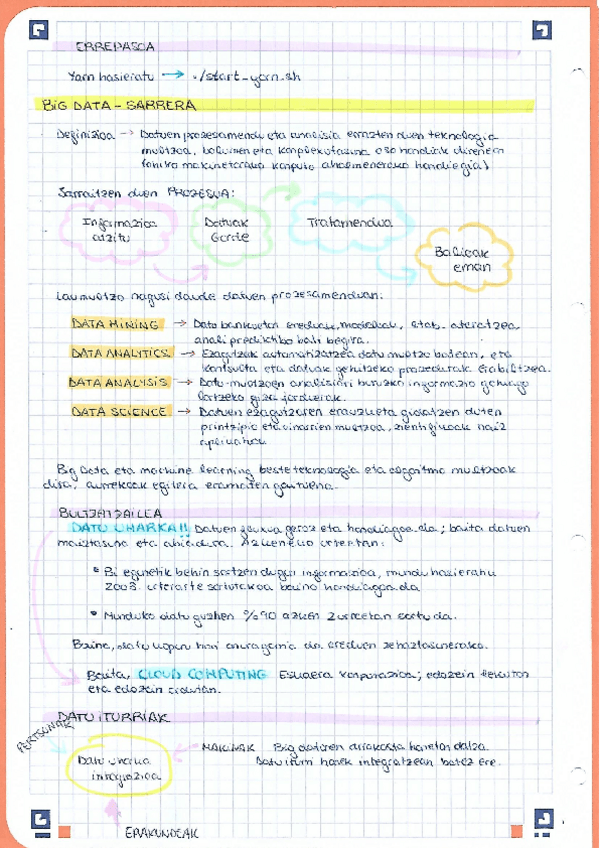 ERREPASOA
Yarn hasieratu → ./start-yarn.sh
BIG DATA - SARRERA
Definizioa → Datuen prozesamendu eta analisia errazten duen teknologia
multzoa, bolumen eta konplexutasuna oso handiak direnean
makinetarako konputo
Jarraitzen duen PROZESUA:
Informazioa
atzitu
Datuak
Gorde
Tratamendua
Balioak
eman
Lau multzo nagusi daude datuen prozesamenduan:
DATA MINING → Datu bankuetan ereduak, etab. ateratzea
analisi prediktibo bati begira.
DATA ANALYTICS → Ezagutzak automatizatzea datu multzo batean, eta
kontsulta eta datuak gehitzeko prozedurak
DATA ANALYSIS → Datu-multzoen analisiari buruzko informazio gehiago
lortzeko giza jarduerak.
DATA SCIENCE → Datuen ezagutzaren erauzketa gidatzen duten
printzipio eta oinarrien multzoa, zientifikoak naiz
Big Data eta machine learning beste teknologia eta algoritmo multzoak
dira, aurrekoak egitera eramaten gaituena.
BULTZATZAILEA
DATU UHARKA!! Datuen geroz eta handiagoa da; baita datuen
maiztasuna eta abiadura. Azkeneko urteetan:
• Bi egunetik behin sortzen dugun informazioa, mundu hasieratu
2003. urterarte sortutakoa baino handiagoa da
• Munduko datu guztien %90 azken 2 urteetan sortu da.
Baina, datu kopuru hori da ereduen zehaztasunerako.
Baita, CLOUD COMPUTING Eskaera konputazioa; edozein lekutan
eta edozein orduetan.
DATU ITURRIAK
PERTSONAK
Datu uharka
integrazioa
MAKINAK Big dataren arrakasta honetan datza.
Datu iturri hauek integratzean batez ere.
ERAKUNDEAK